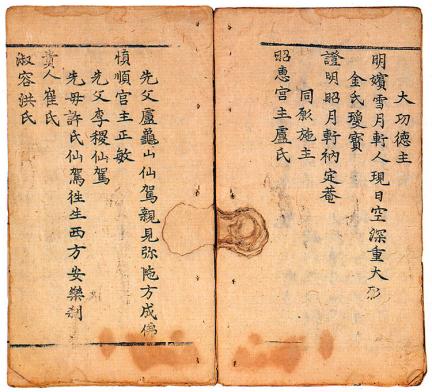 大功德主
明嬪雪月軒人現日空深重大彰
金氏瓊寶
證明昭月軒衲定菴
同彰施主
昭惠宮主盧氏
先父盧龜山仙駕親見弥陁方成佛
愼順宮主正敏
先父李稷仙駕
先母許氏仙駕徃生西方安樂刹
貴人崔氏
淑容洪氏